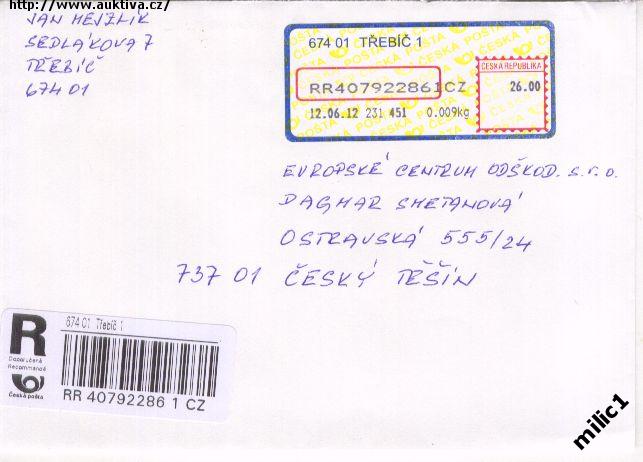 http://www.auktiva.cz/
JAN MEJZLÍK
SEDLÁKOVA 7
TŘEBÍČ
674 01
674 01 TŘEBÍČ 1
ČESKÁ REPUBLIKA
RR407922861CZ
26.00
12.06.12 231 451 0.009kg
EVROPSKÉ CENTRUM ODŠKOD. s.r.o.
DAGMAR SMETANOVÁ
OSTRAVSKÁ 555/24
737 01 ČESKÝ TĚŠÍN
R
Doporučeně
Recommandé
Česká pošta
674 01 Třebíč 1
RR 40792286 1 CZ
milic1